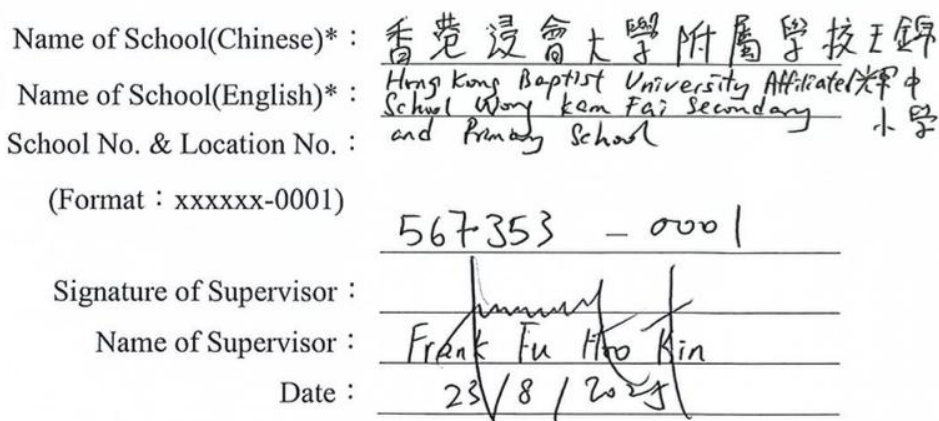 Name of School(Chinese)* : 香港浸會大學附屬學校王錦
Name of School(English)* : Hong Kong Baptist University Affiliated 輝中
School Wong Kam Fai Secondary 小學
School No. & Location No. : and Primary School
(Format : xxxxxx-0001)
567353 - 0001
Signature of Supervisor :
Name of Supervisor : Frank Fu Hoo Kin
Date : 23/8/2025